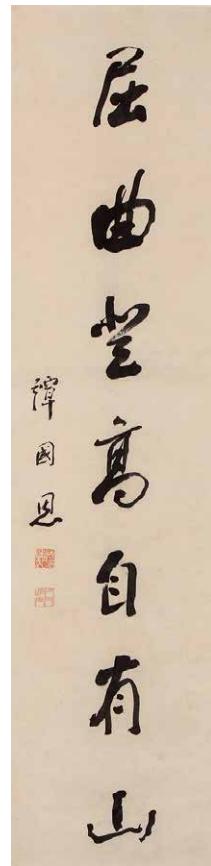 屈曲登高自有山
譚國恩